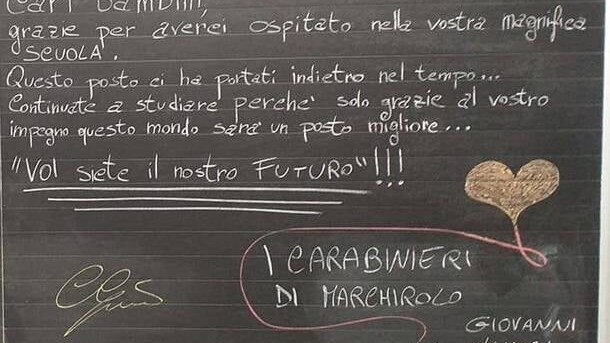 Cari bambini,
grazie per averci ospitato nella vostra magnifica
SCUOLA.
Questo posto ci ha portati indietro nel tempo...
Continuate a studiare perche' solo grazie al vostro
impegno questo mondo sarà un posto migliore...
"VOI siete il nostro FUTURO"!!!
I CARABINIERI
DI MARCHIROLO
GIOVANNI